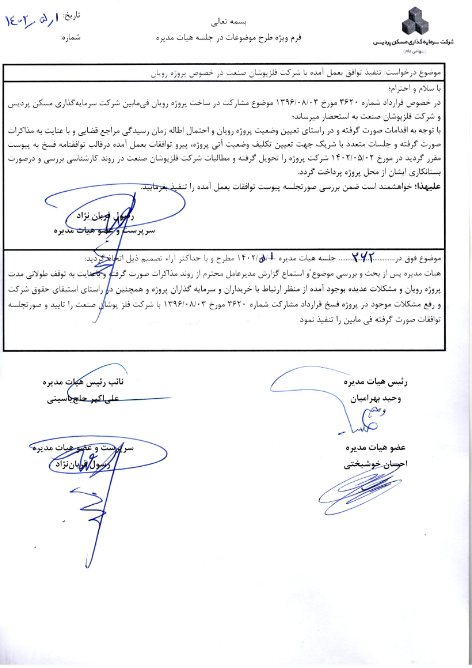 بسمه تعالی
فرم ویژه طرح موضوعات در جلسه هیات مدیره
تاریخ: ۱۴۰۲/۵/۱
شماره:
شرکت سرمایه‌گذاری مسکن پردیس
موضوع درخواست: تنفیذ توافق بعمل آمده با شرکت فلزپوشان صنعت در خصوص پروژه رویان
با سلام و احترام؛
در خصوص قرارداد شماره ۳۶۲۰ مورخ ۱۳۹۶/۰۸/۰۳ موضوع مشارکت در ساخت پروژه رویان فی‌مابین شرکت سرمایه‌گذاری مسکن پردیس
و شرکت فلزپوشان صنعت به استحضار میرساند؛
با توجه به اقدامات صورت گرفته و در راستای تعیین وضعیت پروژه رویان و احتمال اطاله زمان رسیدگی مراجع قضایی و با عنایت به مذاکرات
صورت گرفته و جلسات متعدد با شریک جهت تعیین تکلیف وضعیت آتی پروژه، پیرو توافقات بعمل آمده درقالب توافقنامه فسخ به پیوست
مقرر گردید در مورخ ۱۴۰۲/۰۵/۰۲ شرکت پروژه را تحویل گرفته و مطالبات شرکت فلزپوشان صنعت در روند کارشناسی بررسی و درصورت
بستانکاری ایشان از محل پروژه پرداخت گردد.
علیهذا؛ خواهشمند است ضمن بررسی صورتجلسه پیوست توافقات بعمل آمده را تنفیذ بفرمایید.
رسول قربان نژاد
سرپرست و عضو هیات مدیره
موضوع فوق در جلسه هیات مدیره ۱۴۰۲/ مطرح و با حداکثر آراء تصمیم ذیل اتخاذ گردید:
هیات مدیره پس از بحث و بررسی موضوع و استماع گزارش مدیرعامل محترم از روند مذاکرات صورت گرفته و باعنایت به توقف طولانی مدت
پروژه رویان و مشکلات عدیده بوجود آمده از منظر ارتباط با خریداران و سرمایه گذاران پروژه و همچنین در راستای استیفای حقوق شرکت
و رفع مشکلات موجود در پروژه فسخ قرارداد مشارکت شماره ۳۶۲۰ مورخ ۱۳۹۶/۰۸/۰۳ با شرکت فلز پوشان صنعت را تایید و صورتجلسه
توافقات صورت گرفته فی مابین را تنفیذ نمود
رئیس هیات مدیره
وحید بهرامیان
نائب رئیس هیات مدیره
علی‌اکبر حاج‌یاسینی
عضو هیات مدیره
احسان خوشبختی
سرپرست و عضو هیات مدیره
رسول قربان‌نژاد